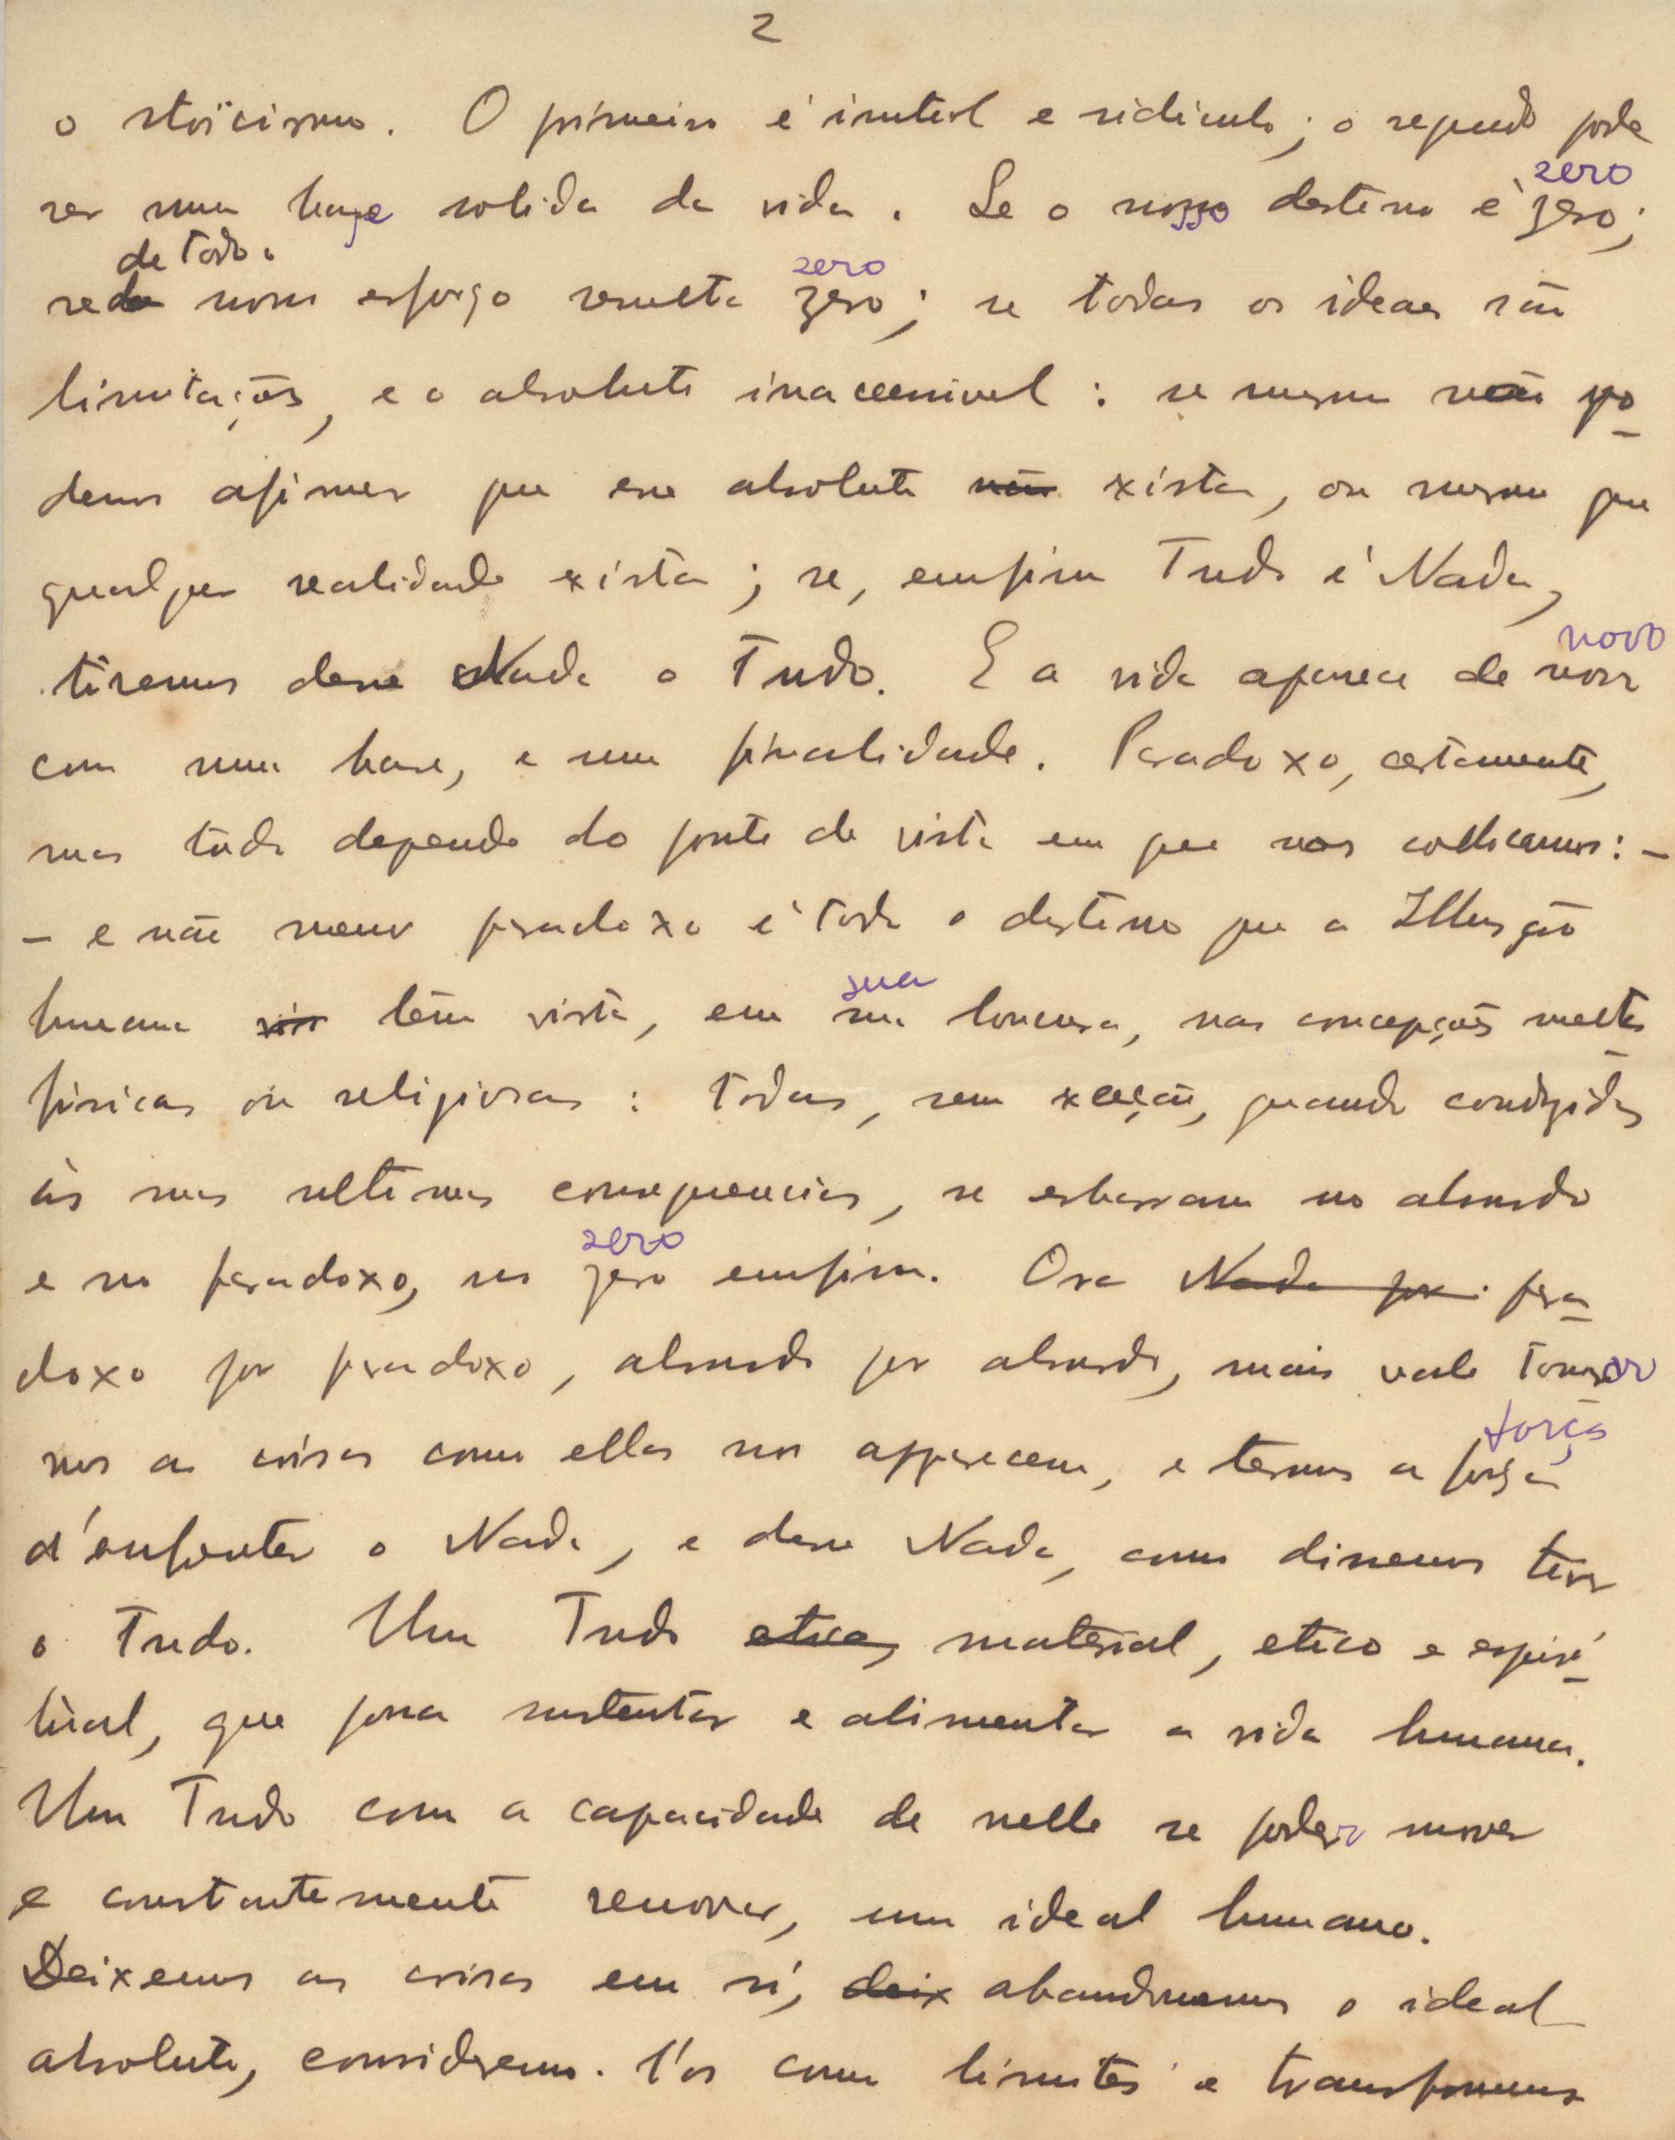 2
o stoïcismo. O primeiro é inutil e ridiculo; o segundo pode
zero
ser uma base solida da vida. Se o nosso destino é zero;
de todo o
se do nosso esforço resulta zero; se todos os ideaes são
zero
limitações, e o absoluto inaccessivel: se mesmo não po-
demos afirmar que esse absoluto não xista, ou mesmo que
qualquer realidade xista; se, emfim Tudo é Nada,
tiremos desse Nada o Tudo. E a vida aparece de novo
novo
com uma base, e uma finalidade. Paradoxo, certamente,
mas tudo depende do ponto de vista em que nos collocamos: -
- e não menos paradoxo é todo o destino que a Illusão
humana vin têm visto, em sua loucura, nas concepções meta-
sua
fisicas ou religiosas: todas, sem xceção, quando conduzidas
ás suas ultimas consequencias, se esbarram no absurdo
e no paradoxo, no zero emfim. Ora Nada por para-
zero
doxo por paradoxo, absurdo por absurdo, mais vale tomar
nos as coisas como ellas nos apparecem, e termos a força
força
d'enfrentar o Nada, e desse Nada, como dissemos tirar
o Tudo. Um Tudo etico, material, etico e espiri-
tual, que possa sustentar e alimentar a vida humana.
Um Tudo com a capacidade de nelle se poder mover
e constantemente renovar, um ideal humano.
Deixemos as coisas em si, deix abandonemos o ideal
absoluto, consideremo-l'os como limites e transformemos